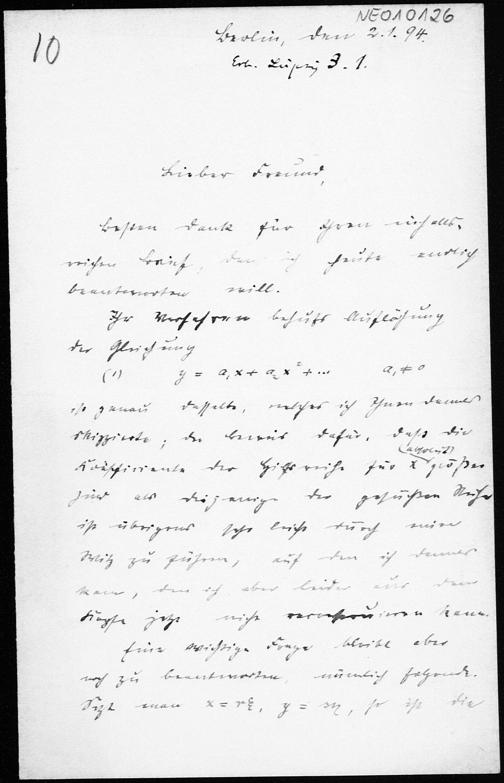 NE010126
10
Berlin, den 2.1.94.
Erh. Leipzig 3.1.
Lieber Freund,
Besten Dank für Ihren inhalts-
reichen Brief, den ich heute endlich
beantworten will.
Ihr Verfahren behufs Auflösung
der Gleichung
(1) y = a₁x + a₂x² + ... a₁ ≠ 0
ist genau dasselbe, welches ich Ihnen damals
skizzierte; der Beweis dafür, daß die
(absolut)
Koëffizienten der Hilfsreihe für x größer
sind als diejenigen der gesuchten Reihe
ist übrigens sehr leicht durch einen
Witz zu führen, auf den ich damals
kam, den ich aber leider aus dem
Kopfe jetzt nicht reconstruieren kann.
Eine wichtige Frage bleibt aber
noch zu beantworten, nämlich folgende.
Setzt man x = rξ, y = sη, so ist die